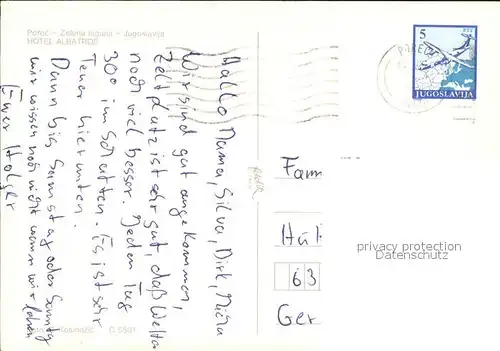 Poreč - Zelena laguna - Jugoslavija
HOTEL ALBATROS
Hallo Mama, Silva, Dirk,
Wir sind gut angekommen,
Zeltplatz ist sehr gut, das Wetter
noch viel besser. Jeden Tag
30° im Schatten. Es ist sehr
Teuer hier unten.
Dann bis Samstag oder Sonntag
wir wissen noch nicht wann wir fahren
Euer Holger
5
JUGOSLAVIJA
Fam
Hüt
63
Ger
privacy protection
Datenschutz